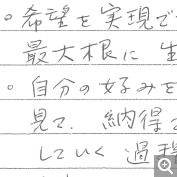 ○希望を実現で
最大根に生
○自分の好みを
見て、納得
していく過程